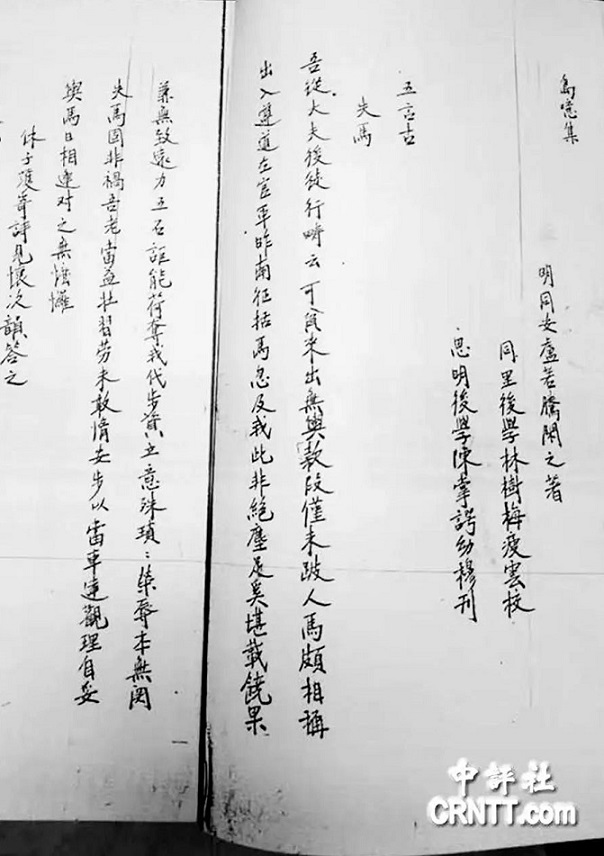 島噫集
明同安盧若騰閑之著
同里後學林樹梅瘦雲校
思明後學陳掌諤幼穆刊
五言古
失馬
吾從大夫後徒行疇云可食來出無輿款段僅未跛人馬頗相稱
出入遵道左官軍昨南征括馬忽及我此非絕塵足奚堪載饒果
兼無致遠力五石詎能荷奪我代步資立意殊瑣:榮辱本無関
失馬固非禍吾老當益壯習勞未敢惰安步以當車達觀理自妥
馬日相連对之無
子寄詩見懷次韻答之
中評社
CRNTT.com